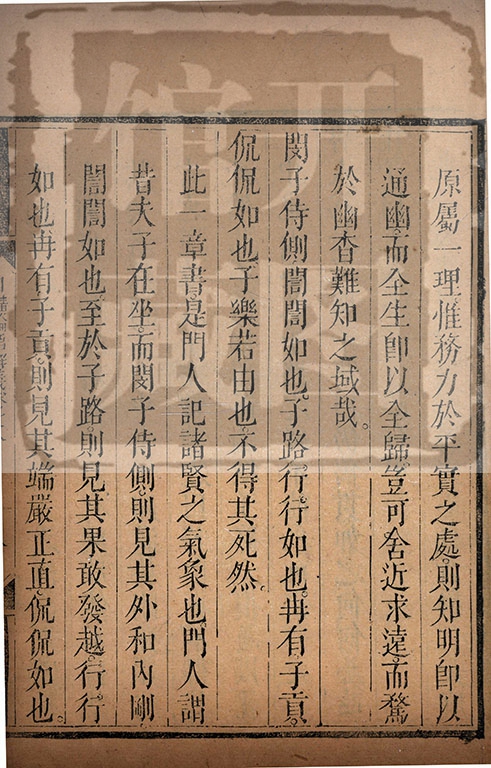 原屬一理惟務力於平實之處則知明即以
通幽而全生即以全歸豈可舍近求遠而騖
於幽杳難知之域哉。
閔子侍側誾誾如也子路行行如也冉有子貢。
侃侃如也子樂若由也不得其死然。
此一章書是門人記諸賢之氣象也門人謂
昔夫子在坐而閔子侍側則見其外和內剛
誾誾如也至於子路則見其果敢發越行行
如也冉有子貢則見其端嚴正直侃侃如也。